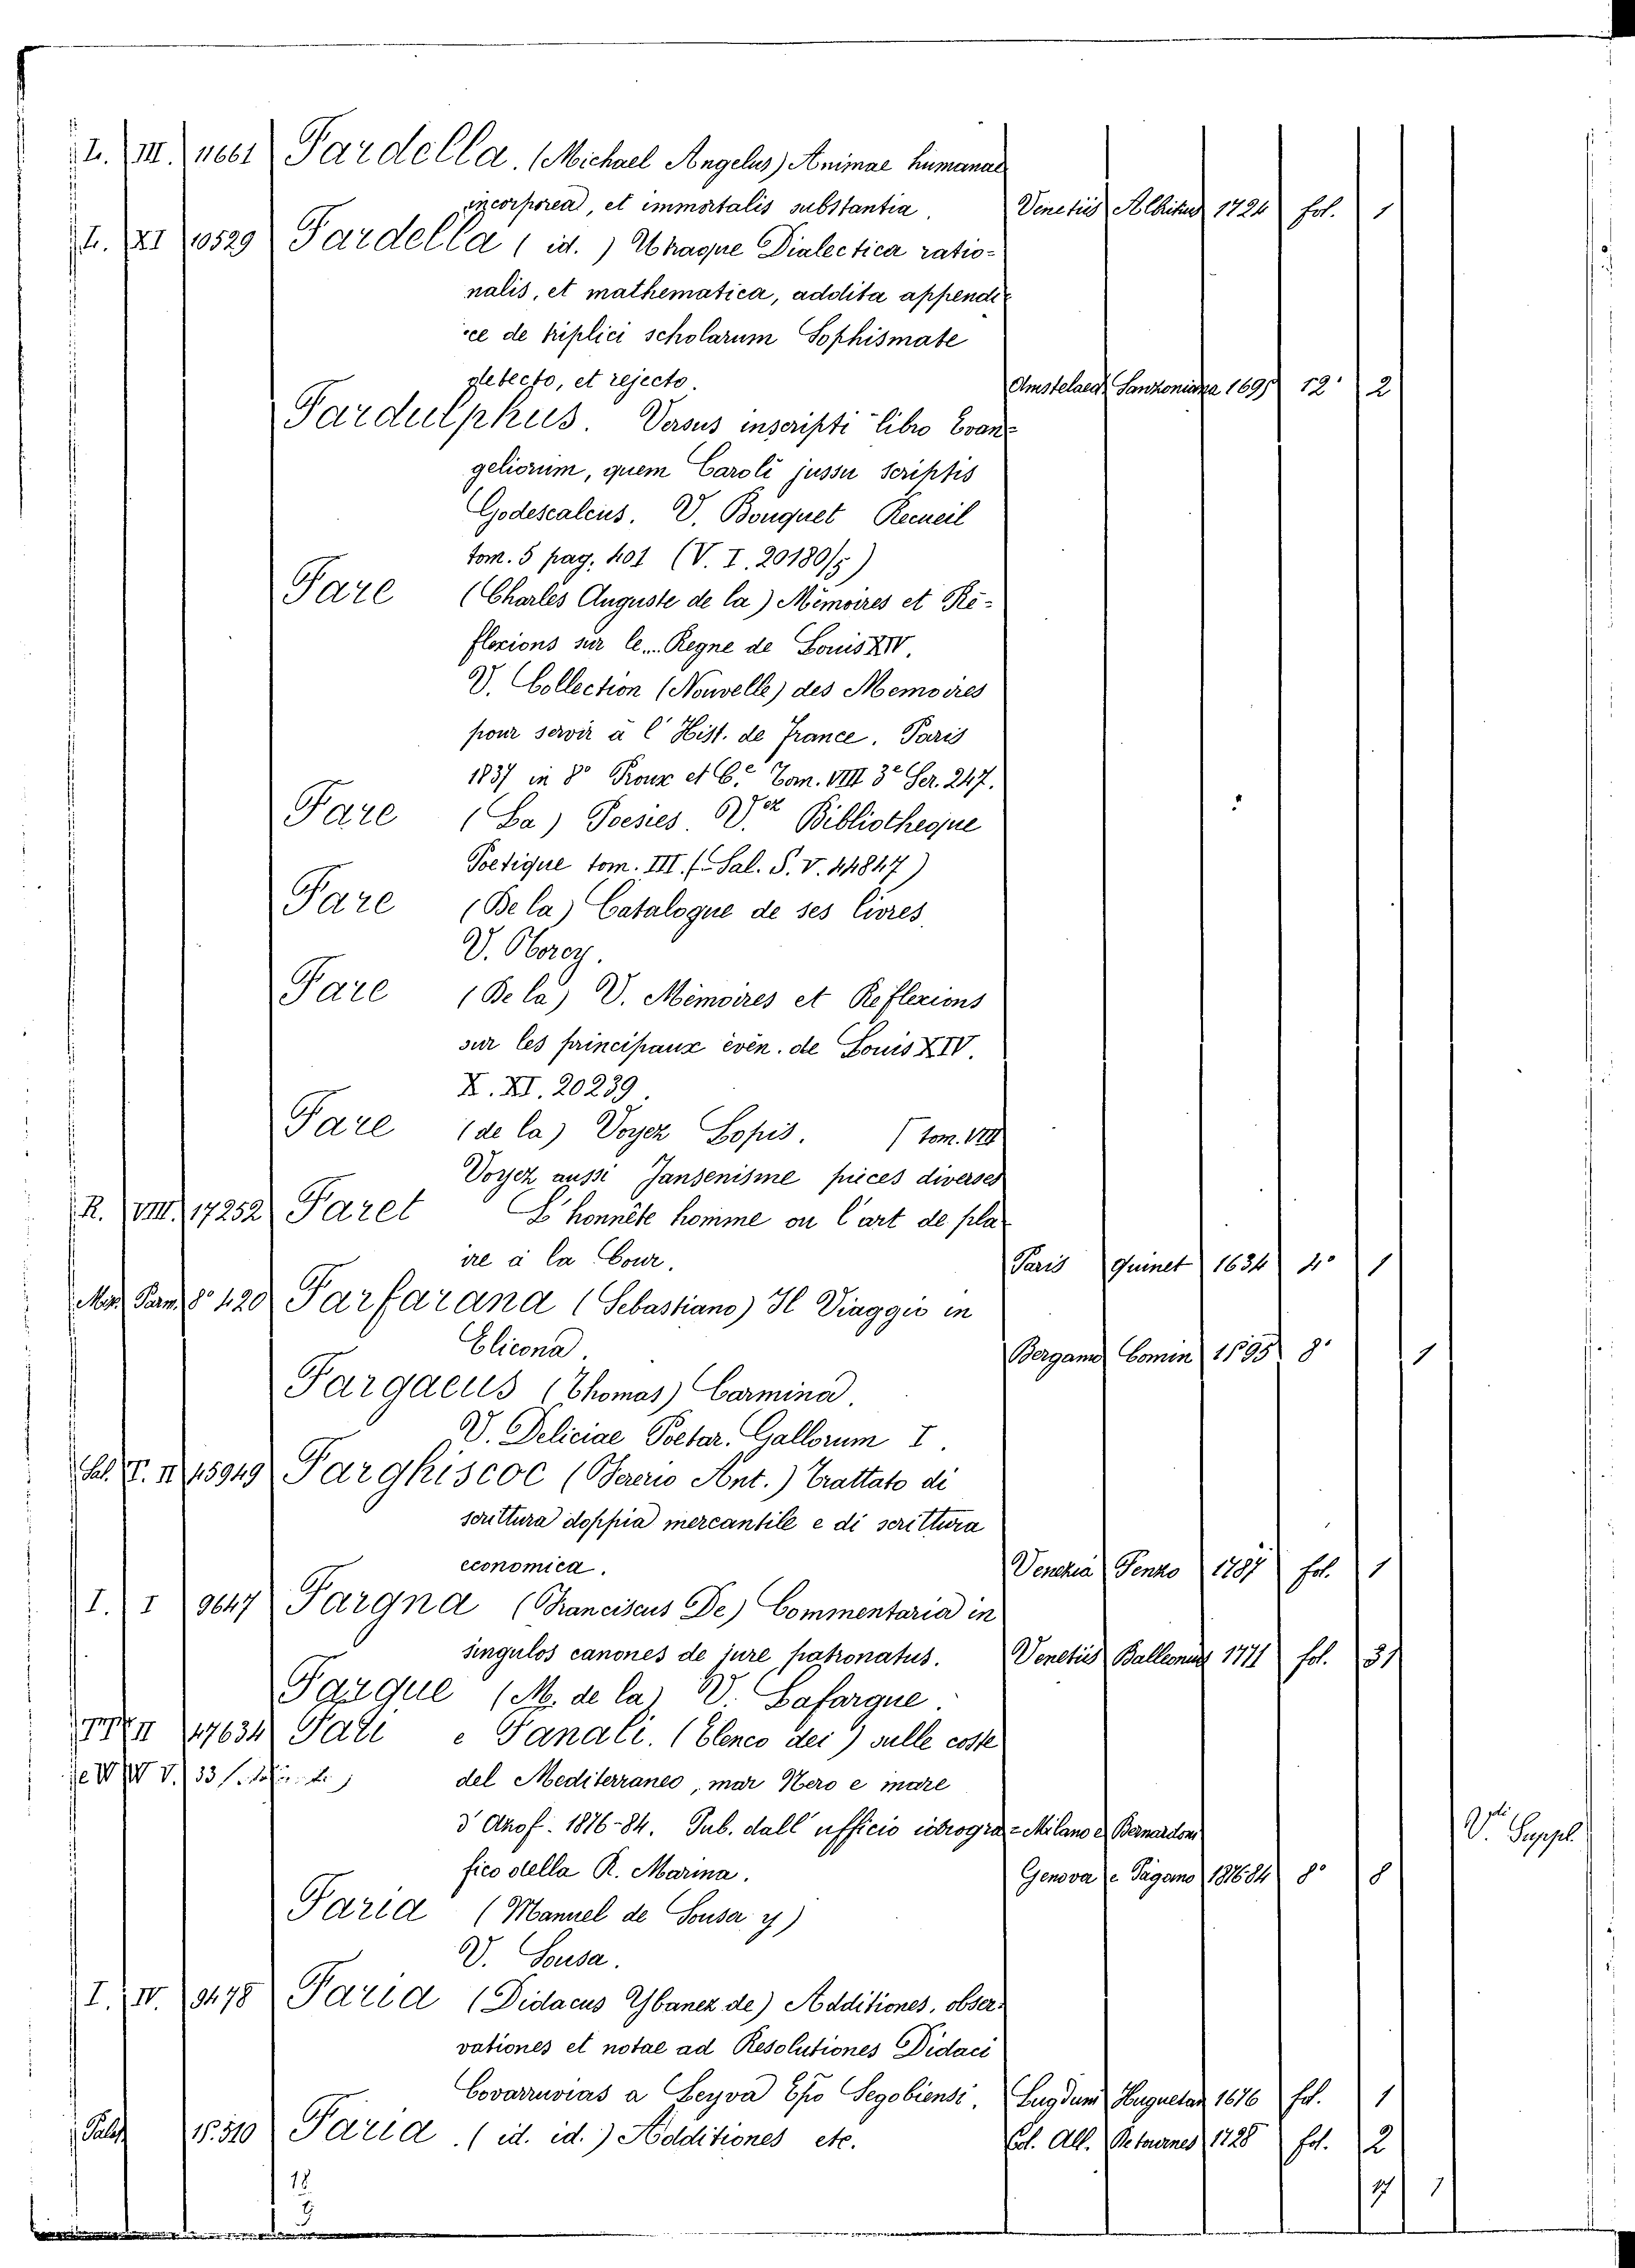 L. III. 11661 Fardella. (Michael Angelus) Animae humanae
incorporea, et immortalis substantia. Venetiis Albitius 1724 fol. 1
L. XI 10529 Fardella (id.) Utraque Dialectica ratio=
nalis, et mathematica, addita appendi=
ce de triplici scholarum Sophismate
detecto, et rejecto. Amstelaed. 1695 12° 2
Fardulphus. Versus inscripti libro Evan=
geliorum, quem Caroli jussu scriptis
Godescalcus. V. Bouquet Recueil
tom. 5 pag. 401 (V. I. 20180/5)
Fare (Charles Auguste de la) Mémoires et Ré=
flexions sur le... Regne de Louis XIV.
V. Collection (Nouvelle) des Memoires
pour servir à l'Hist. de France. Paris
1837 in 8° Proux et C.e Tom. VIII 3e Ser. 247.
Fare (La) Poesies. V.ez Bibliotheque
Poetique tom. III. (Sal. S. V. 44847)
Fare (De la) Catalogue de ses livres
V.
Fare (De la) V. Mémoires et Reflexions
sur les principaux évén. de Louis XIV.
X. XI. 20239
Fare (de la) Voyez Lopis. tom. VIII
Voyez aussi Jansenisme pièces diverses
R. VIII. 17252 Faret L'honnête homme ou l'art de pla
ire à la Cour. Paris Quinet 1634 4° 1
Parm. 8° 420 Farfarana (Sebastiano) Il Viaggio in
Elicona. Bergamo Comin 1595 8° 1
Fargaeus (Thomas) Carmina.
V. Deliciae Poetar. Gallorum I.
Sal. T. II 45949 Farghiscoc (Bererio Ant.) Trattato di
scrittura doppia mercantile e di scrittura
economica. Venezia Fenzo 1787 fol. 1
I. I 9647 Fargna (Franciscus De) Commentaria in
singulos canones de jure patronatus. Venetiis Balleonius 1771 fol. 3
Fargue (M. de la) V. Lafargue.
II 47634 Fari e Fanali. (Elenco dei) sulle coste
e W W V. 33
del Mediterraneo, mar Nero e mare
d'Azof. 1876-84. Pub. dall'ufficio idrogra= Milano e Bernardoni V.di Suppl.
fico della R. Marina. Genova e Pagano 1876 84 8° 8
Faria (Manuel de Sousa y)
V. Sousa.
I. IV. 9478 Faria (Didacus Ybanez de) Additiones, obser=
vationes et notae ad Resolutiones Didaci
Covarruvias a Leyva Epo Segobiensi. Lugduni Huguetan 1676 fol. 1
Palat 15.510 Faria. (id. id.) Additiones etc. Col. All. De tournes 1728 fol. 2
18
3